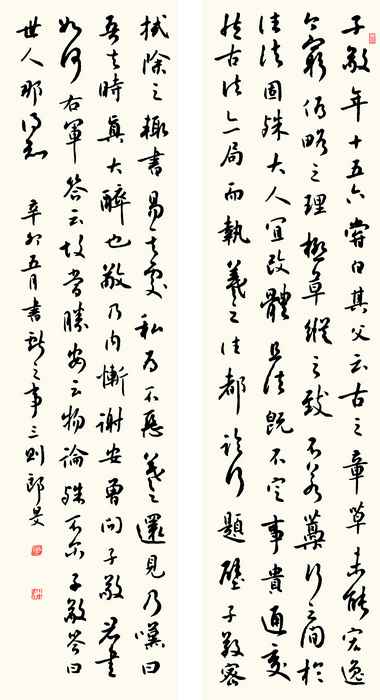 子敬年十五六嘗白其父云古之章草未能宏逸
今窮偽略之理極草縱之致不若藁行之間於
往法固殊大人宜改體且法既不定事貴通變
然古法亦局而執羲之往都臨行題壁子敬密
拭除之輒書易其處私為不惡羲之還見乃嘆曰
吾去時真大醉也敬乃內慚謝安曾問子敬君書
如何右軍答云故當勝安云物論殊不爾子敬答曰
世人那得知 辛卯五月書獻之事三則郎旻